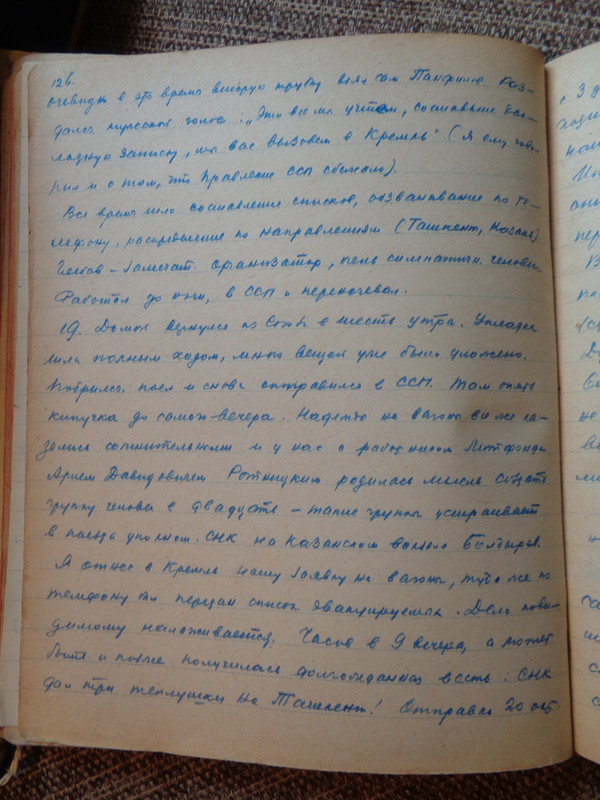 126.
очевидно в это время вторую трубку взял сам Памфилов. Раз-
дался мужской голос: „Это все мы учтем, составьте
записку, что вас вызовем в Кремль" (Я ему гово-
рил и о том, что Правление ССП сбежало).
Все время шло составление списков, обзванивание по те-
лефону, распределение по направлениям (Ташкент, Казань)
замечат. организатор, очень симпатичн. человек.
Работал до ночи, в ССП и переночевал.
19. Домой вернулся из Союза в шесть утра. Укладка
шла полным ходом, много вещей уже было уложено.
Побрился, поел и снова отправился в ССП. Там опять
кипучка до самого вечера. Надежды на вагоны все же ка-
зались сомнительными и у нас с работником Литфонда
Арием Давидовичем Ротницким родилась мысль создать
группу человек в двадцать – такие группы устраивает
в поезда уполном. СНК на Казанском вокзале Болдырев.
Я отнес в Кремль нашу заявку на вагоны, туда же по
телефону был передан список эвакуируемых. Дело пови-
димому налаживается. Часов в 9 вечера, а может
быть и позже получилась долгожданная весть: СНК
дал три теплушки на Ташкент! Отправка 20 окт.
с 3